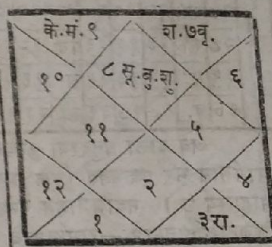 के.मं.९ श.७बृ.
१० ८ सू.बु.शु. ६
११ ५
१२ २ ४
१ ३रा.